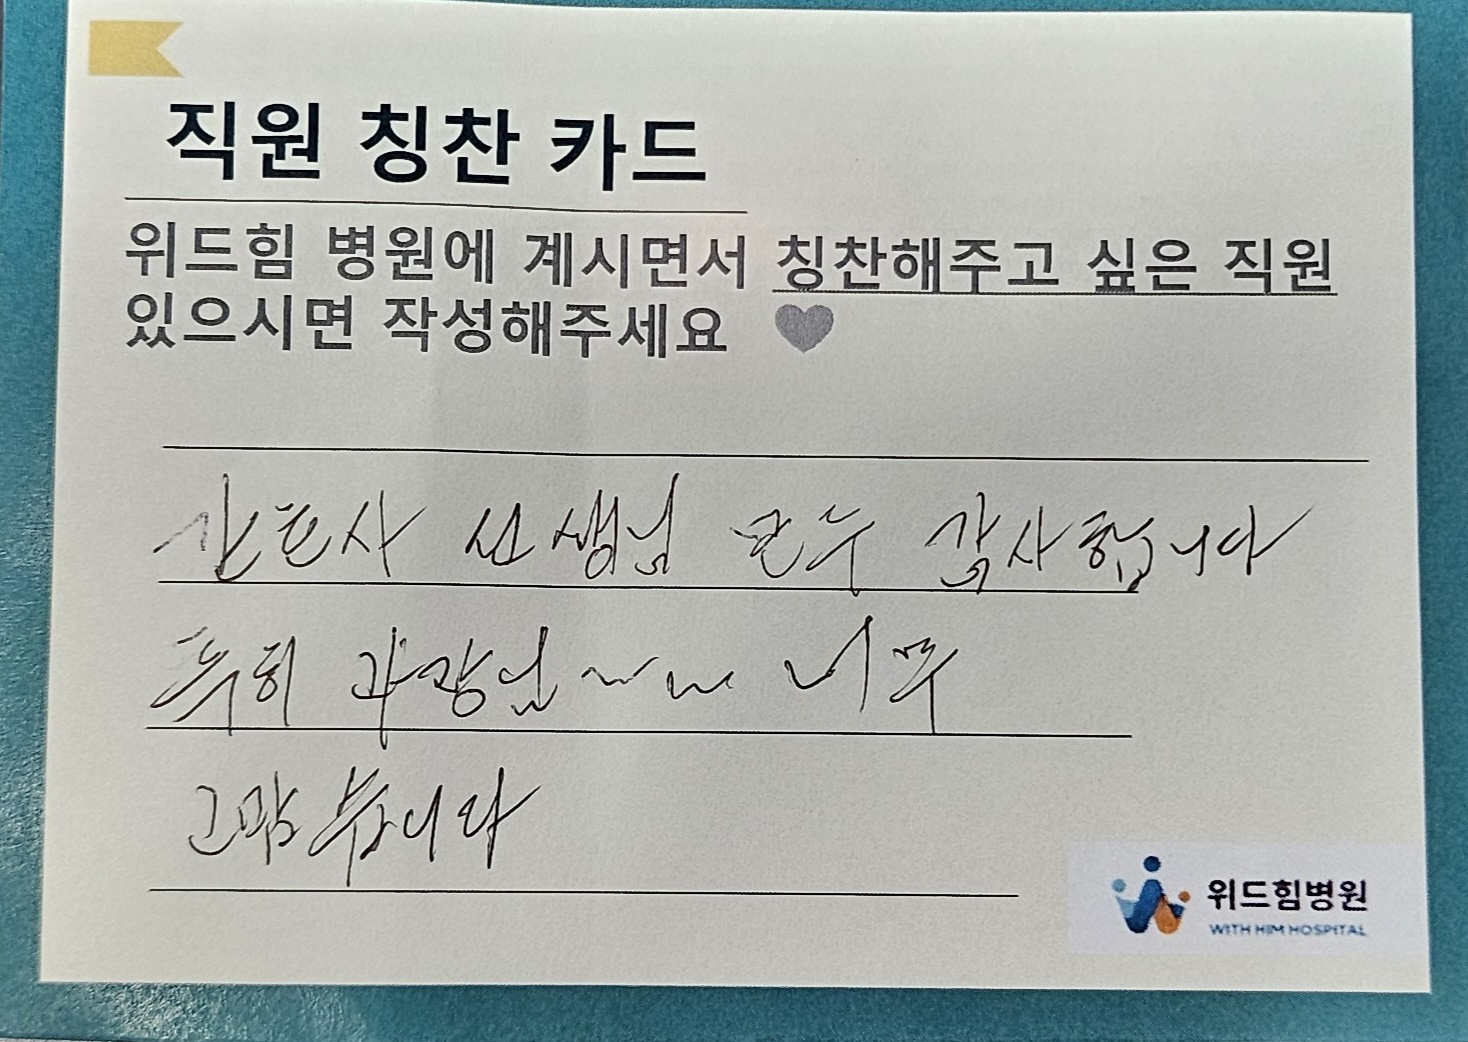 직원 칭찬 카드
위드힘 병원에 계시면서 칭찬해주고 싶은 직원
있으시면 작성해주세요
간호사 선생님 모두 감사합니다
특히 과장님~~ 너무
고맙습니다
위드힘병원
WITH HIM HOSPITAL